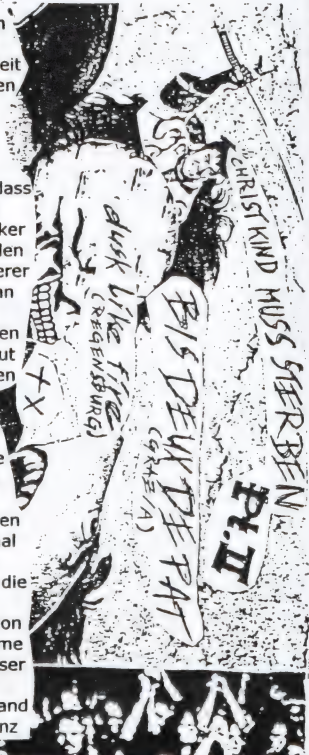 eit
en
lass
ker
den
erer
an
en
ut
en
e
en
al
die
on
me
ser
and
nz
CHRISTKIND MUSS STERBEN
Pt.II
dusk like fire
(REGENSBURG)